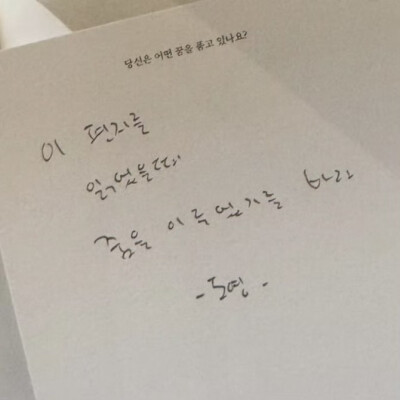 당신은 어떤 꿈을 품고 있나요?
이 편지를
읽었을때
꿈을 이루었기를 바라
- 도연 -